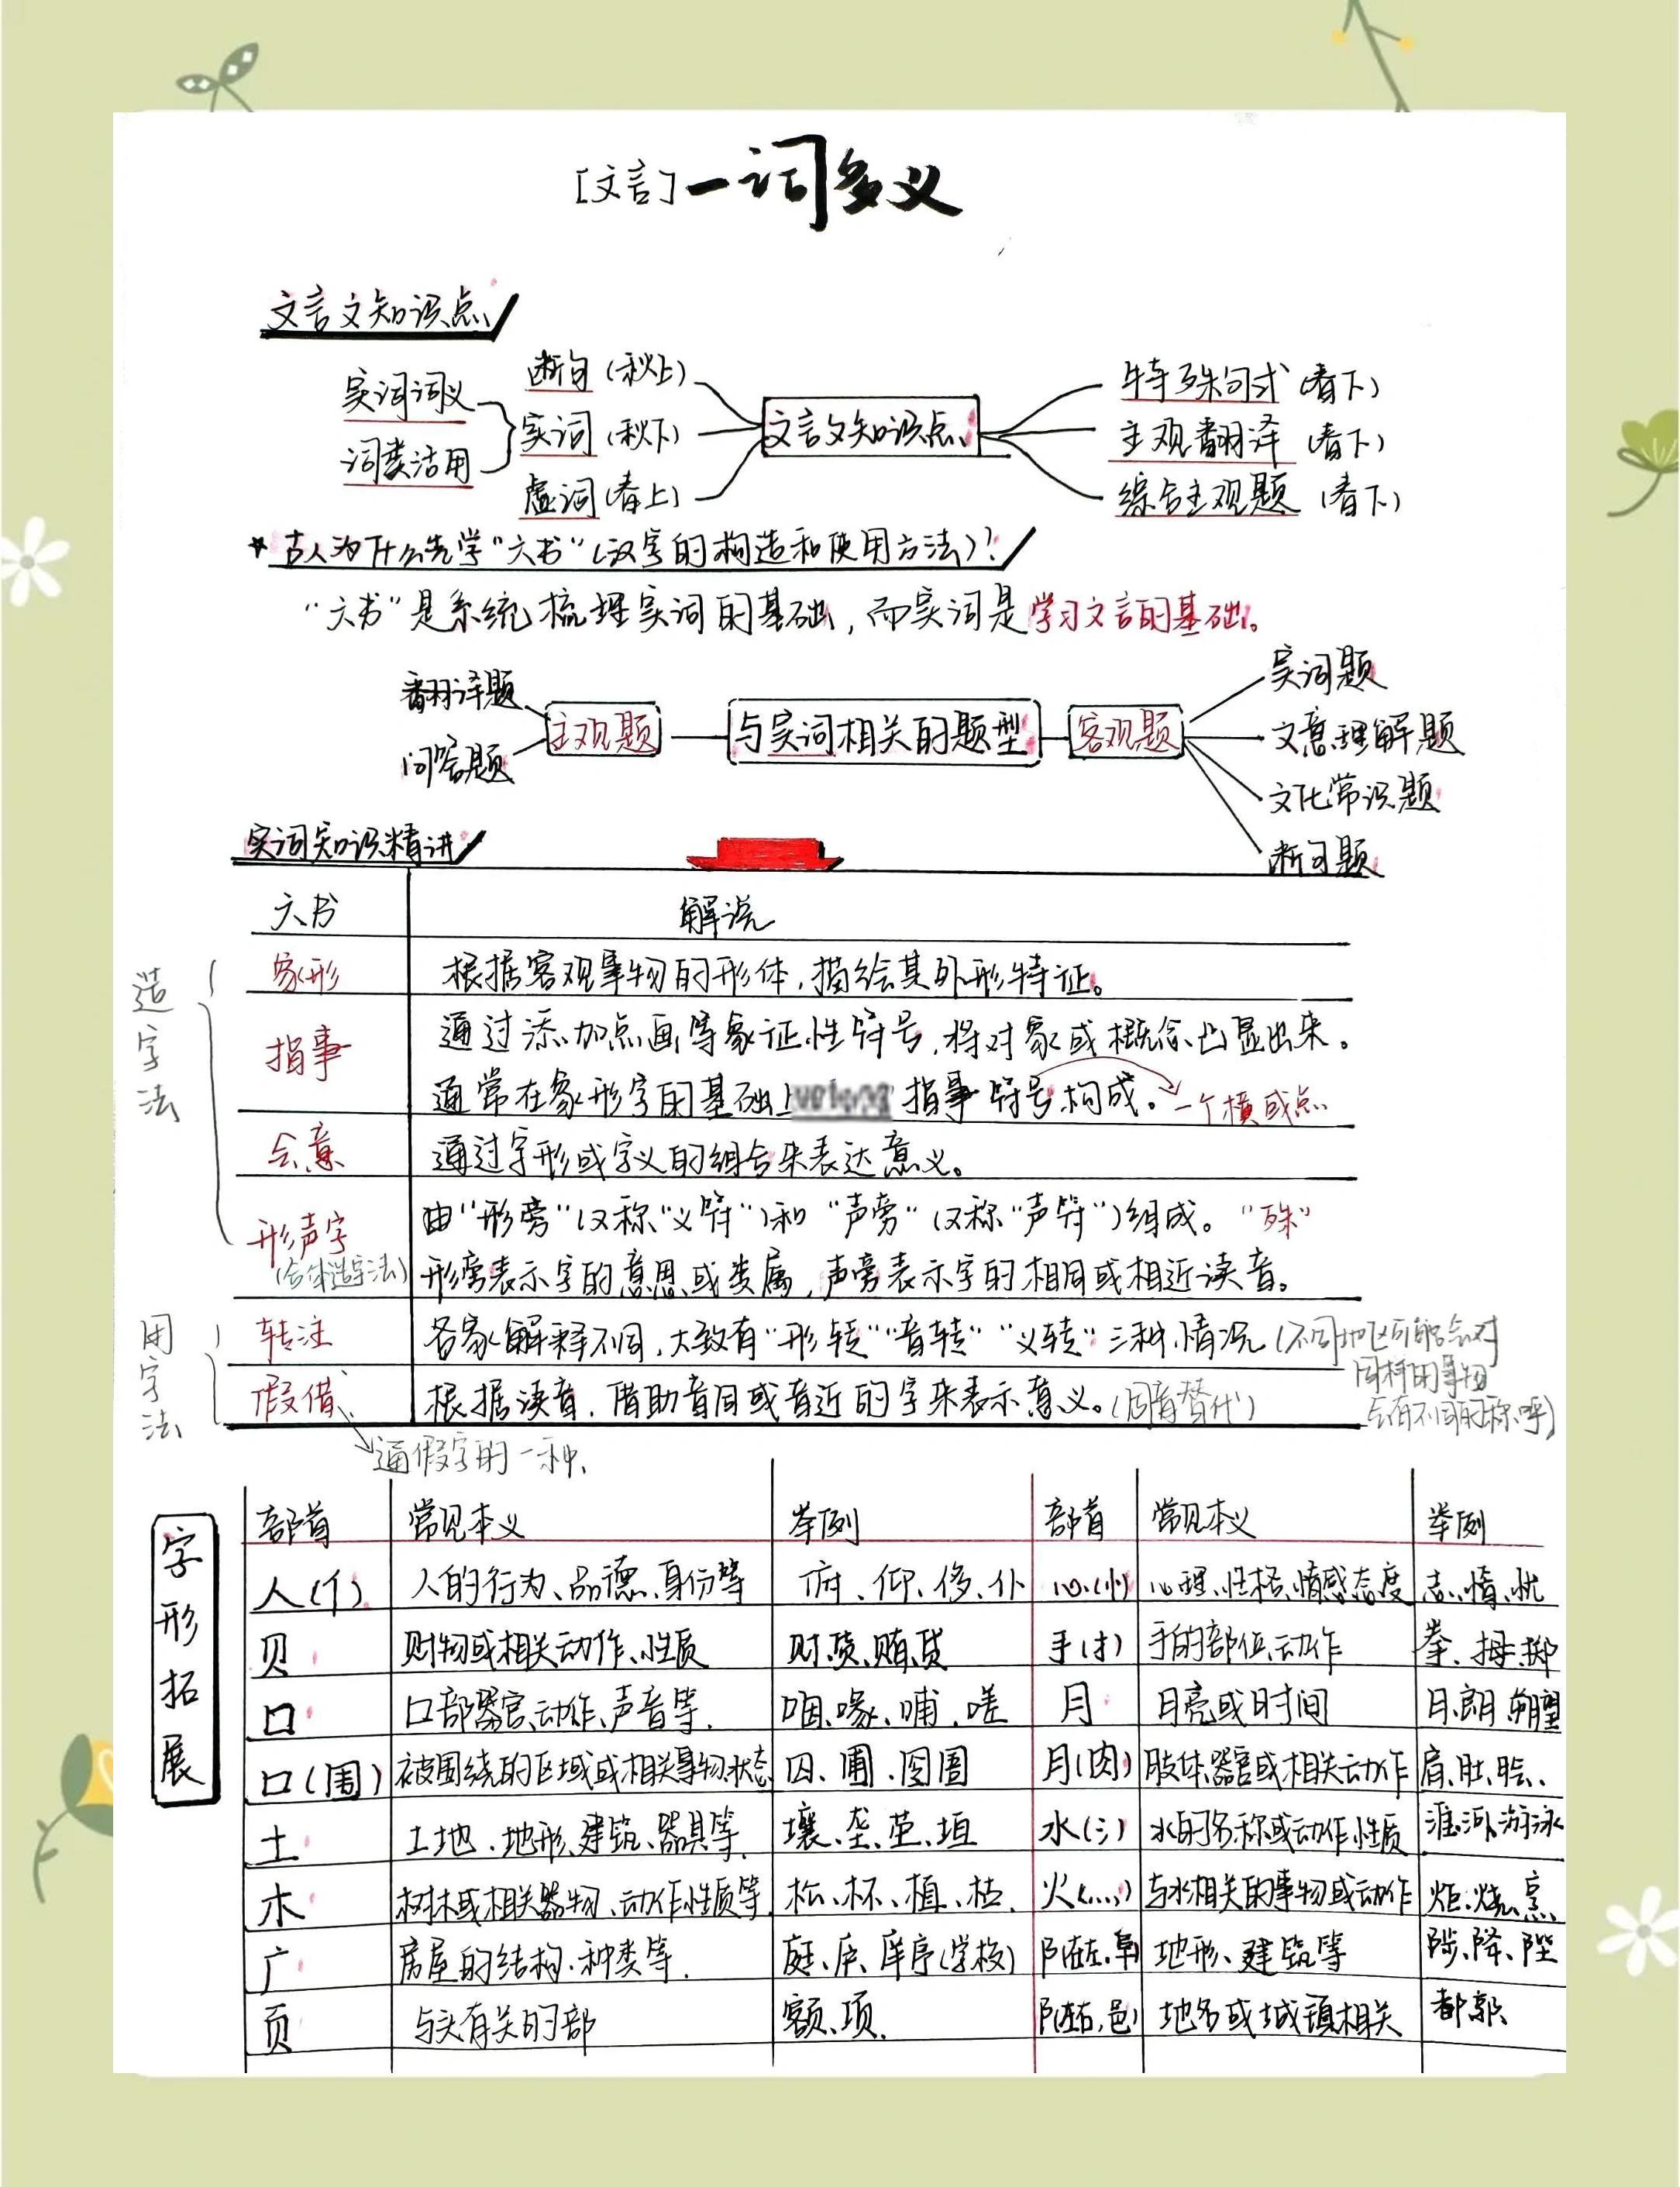 [文言]一词多义
文言文知识点
实词词义
词类活用
断句(秋上)
实词(秋下)
虚词(春上)
文言文知识点
特殊句式(春下)
主观翻译(春下)
综合主观题(春下)
*古人为什么先学"六书"(汉字的构造和使用方法)?
"六书"是系统梳理实词的基础,而实词是学习文言的基础。
翻译题
问答题
主观题
与实词相关的题型
客观题
实词题
文意理解题
文化常识题
断句题
实词知识精讲
六书 解说
造字法
象形 根据客观事物的形体,描绘其外形特征。
指事 通过添加点画等象征性符号,将对象或概念凸显出来。
通常在象形字的基础上 指事符号构成。一个横或点
会意 通过字形或字义的组合来表达意义。
形声字 由"形旁"(又称"义符")和"声旁"(又称"声符")组成。"殊"
(合体造字法) 形旁表示字的意思或类属,声旁表示字的相同或相近读音。
用字法
转注 各家解释不同,大致有"形转""音转""义转"三种情况(不同地区可能会对
同样的事物
会有不同的称呼)
假借 根据读音,借助音同或音近的字来表示意义。(同音替代)
通假字的一种
字形拓展
部首 常见本义 举例 部首 常见本义 举例
人(亻) 人的行为、品德、身份等 俯、仰、侈、仆 心(忄) 心理、性格、情感态度 志、惰、忧
贝 财物或相关动作、性质 财、货、贿、贷 手(扌) 手的部位、动作 拳、拇、掷
口 口部器官、动作、声音等 咽、喙、哺、嗟 月 月亮或时间 月、朗、朔望
口(围) 被围绕的区域或相关事物、状态 囚、圃、囹圄 月(肉) 肢体、器官或相关动作 肩、肚、脍、
土 土地、地形、建筑、器具等 壤、垄、茔、垣 水(氵) 水的名称或动作、性质 淮、河、游泳
木 树木或相关器物、动作性质等 松、杯、植、枯 火(灬) 与火相关的事物或动作 炬、烧、烹、
广 房屋的结构、种类等 庭、庐、庠序(学校) 阝(在左,阜) 地形、建筑等 陟、降、陛
页 与头有关的部 额、项、 阝(在右,邑) 地名或城镇相关 都、郭、